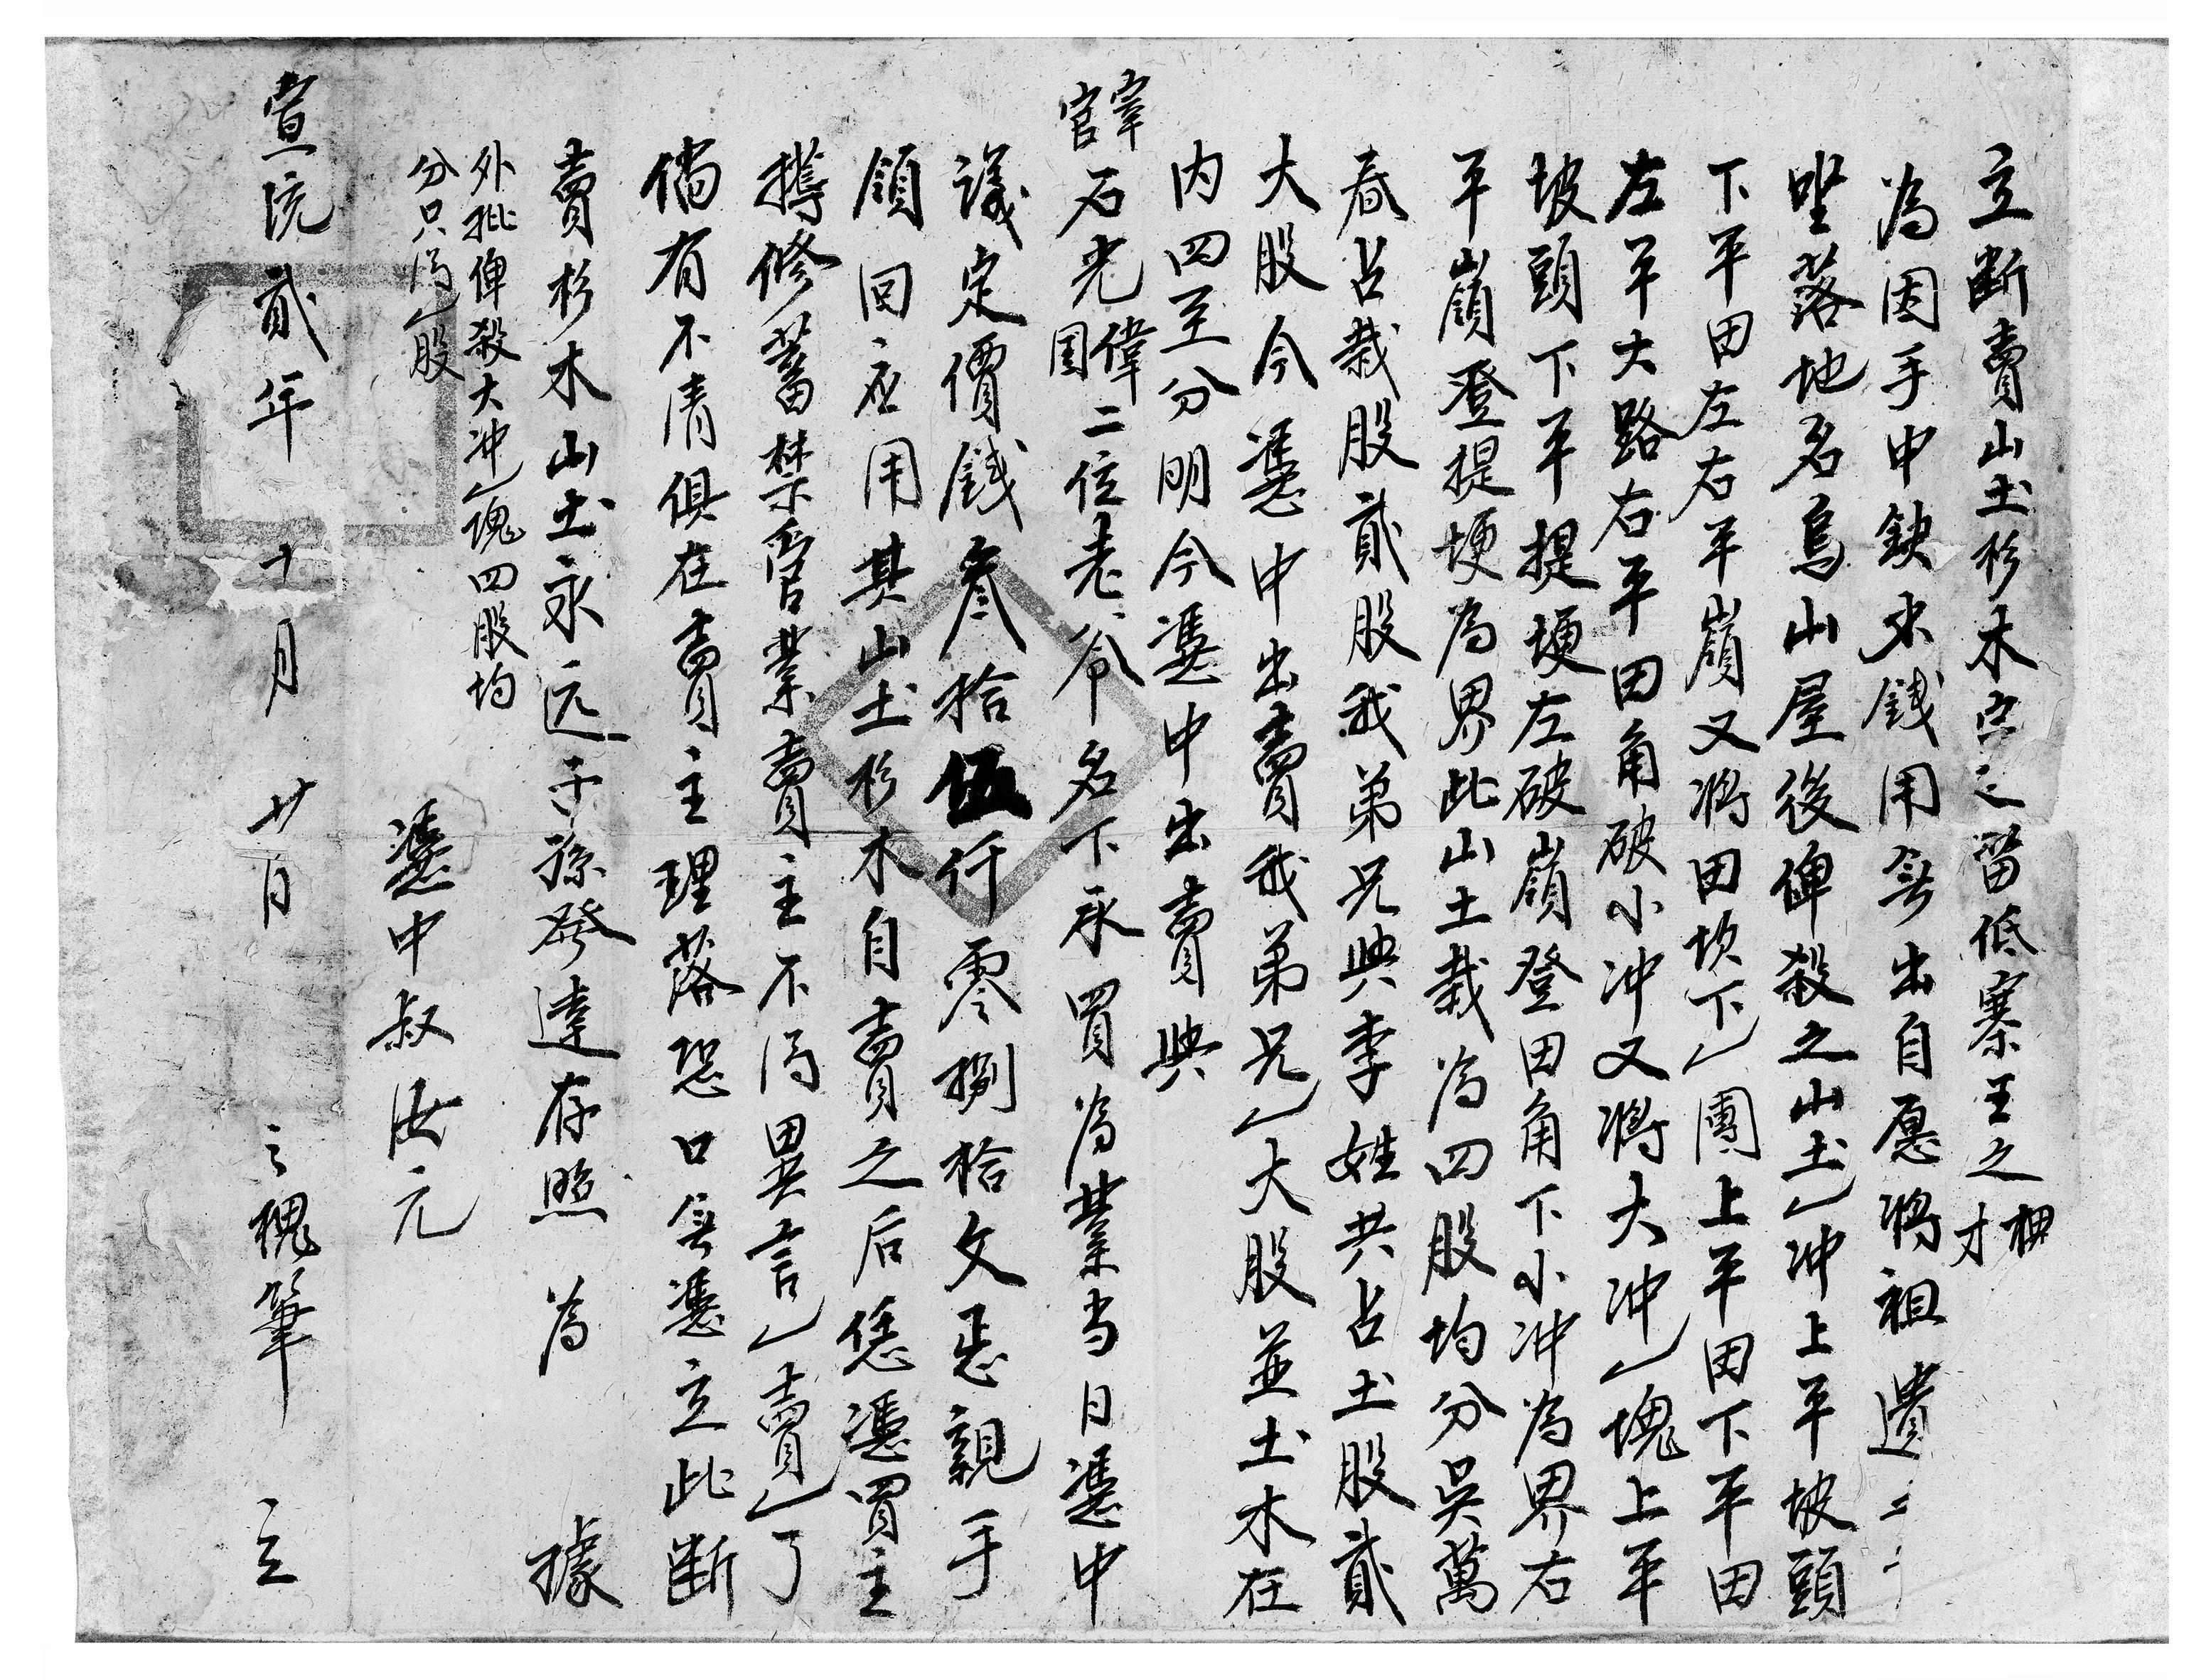 立断賣山土杉木字之留低寨王之槐才
為因手中缺少錢用無出自愿將祖遺
坐落地名烏山屋後俾殺之山土乙冲上平坡頭
下平田左右平嶺又將田坎下乙團上平田下平田
左平大路右平田角破小冲又將大冲乙塊上平
坡頭下平提埂左破嶺登田角下小冲為界右
平嶺登提埂為界此山土栽為四股均分吳萬
春占栽股貳股我弟兄與李姓共占土股貳
大股今憑中出賣我弟兄乙大股並土木在
内四至分明今憑中出賣與
宰官石光偉國二位老爷名下承買為業当日憑中
議定價錢叁拾伍仟零捌拾文正親手
領回应用其山土杉木自賣之后恁憑買主
携修蓄禁管業賣主不得異言乙賣乙了
倘有不清俱在賣主理落恐口無憑立此断
賣杉木山土永远子孫發達存照為據
外批俾殺大冲乙塊四股均
分只得乙股
憑中叔洪元
宣統貳年十月廿日之槐筆立